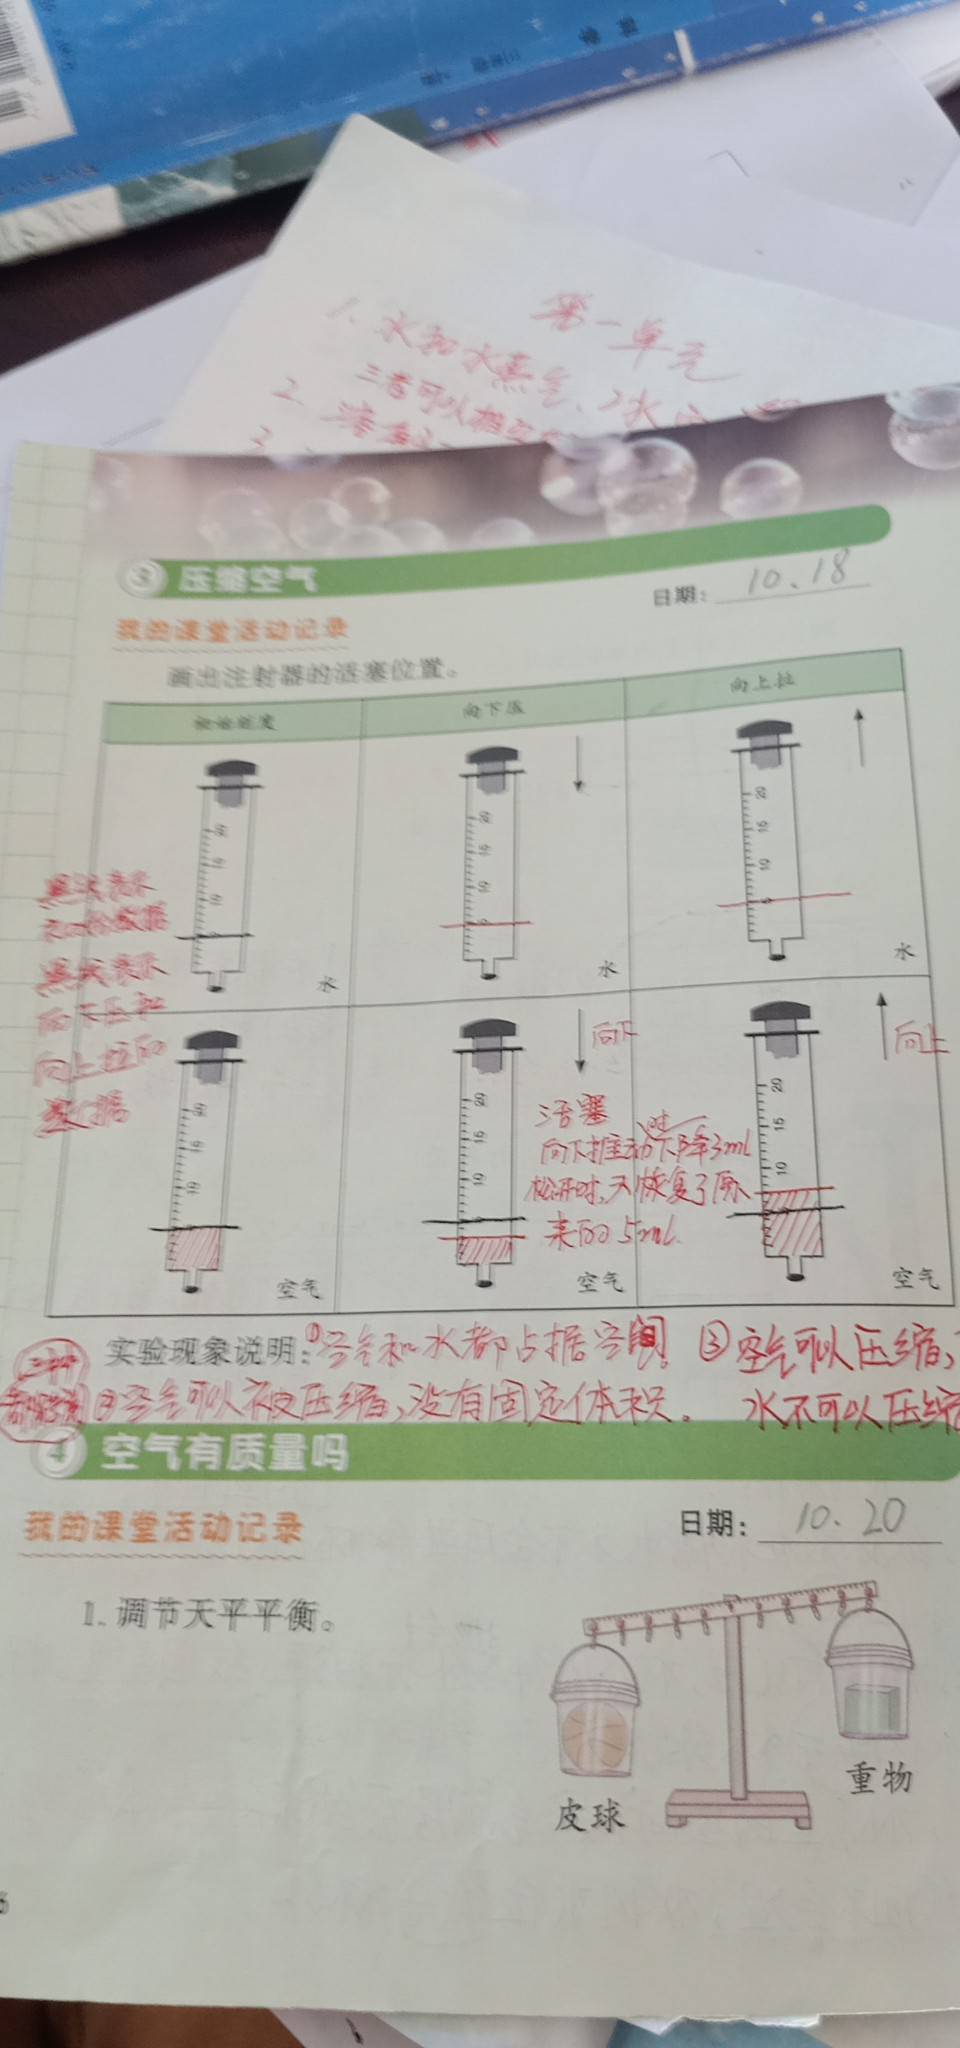 第一单元
1、水和水蒸气、水
三者可以相互
③ 压缩空气
日期：10、18
我的课堂活动记录
画出注射器的活塞位置。
初始刻度
向下压
向上拉
20
15
10
5
水
20
15
10
5
水
20
15
10
5
水
黑线表示
初始数据
黑线表示
向下压和
向上拉的
数据
20
15
10
空气
20
15
10
向下
活塞
向下推动时下降3ml
松开时,又恢复了原
来的5ml.
空气
20
15
10
向上
空气
实验现象说明:①空气和水都占据空间。③空气可以压缩,
②空气可以被压缩,没有固定体积。 水不可以压缩
三种
4 空气有质量吗
我的课堂活动记录
日期：10.20
1. 调节天平平衡。
皮球
重物